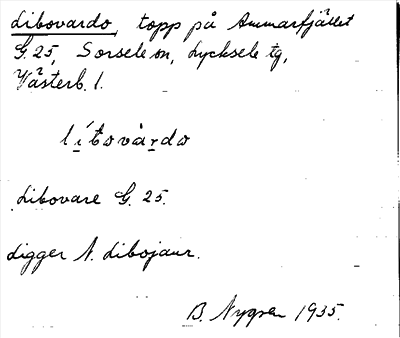 Libovardo, topp på Ammarfjället
G. 25, Sorsele sn, Lycksele tg,
Västerb. l.
lítsovàrdo
Libovare G. 25.
Ligger N. Libojaur.
B. Nygren 1935.